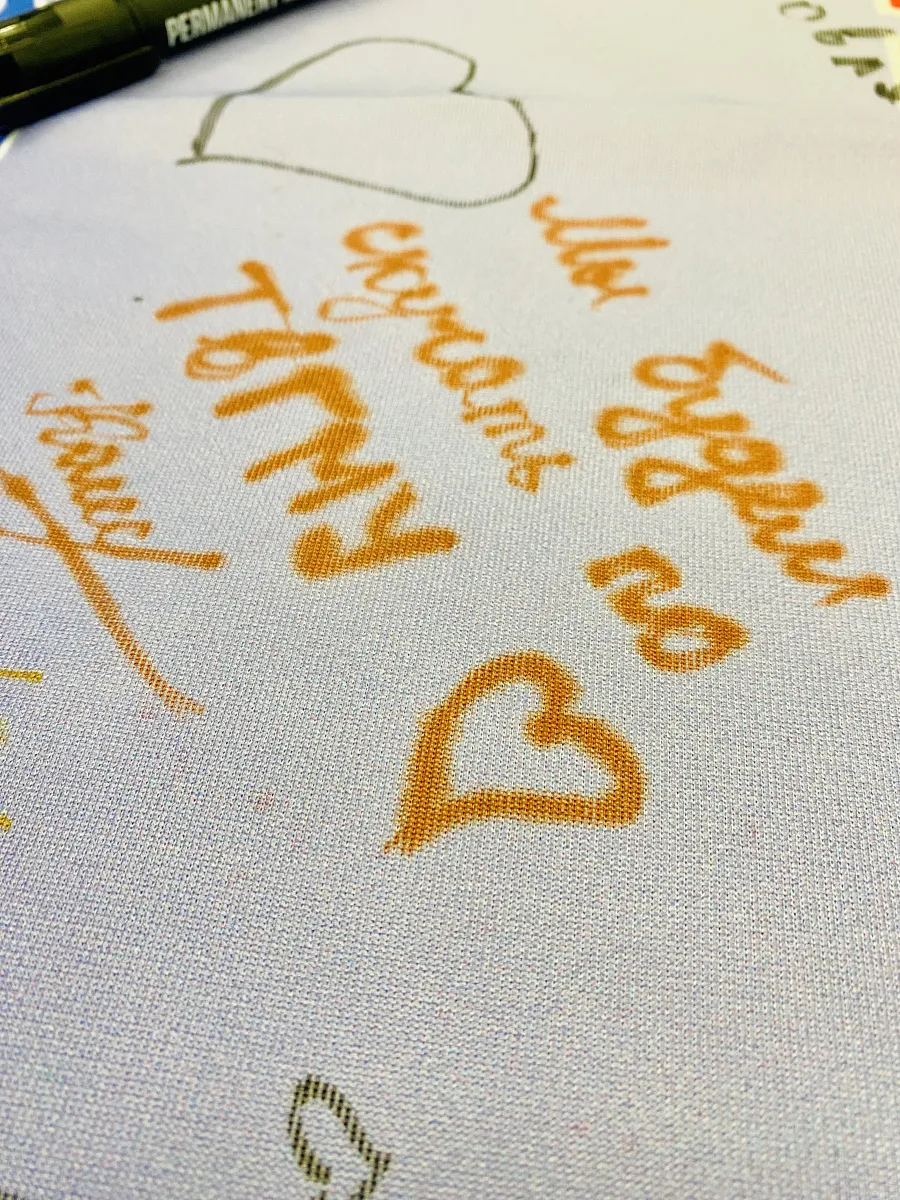 PERMANENT
Мы будем
скучать по
ТвГМУ